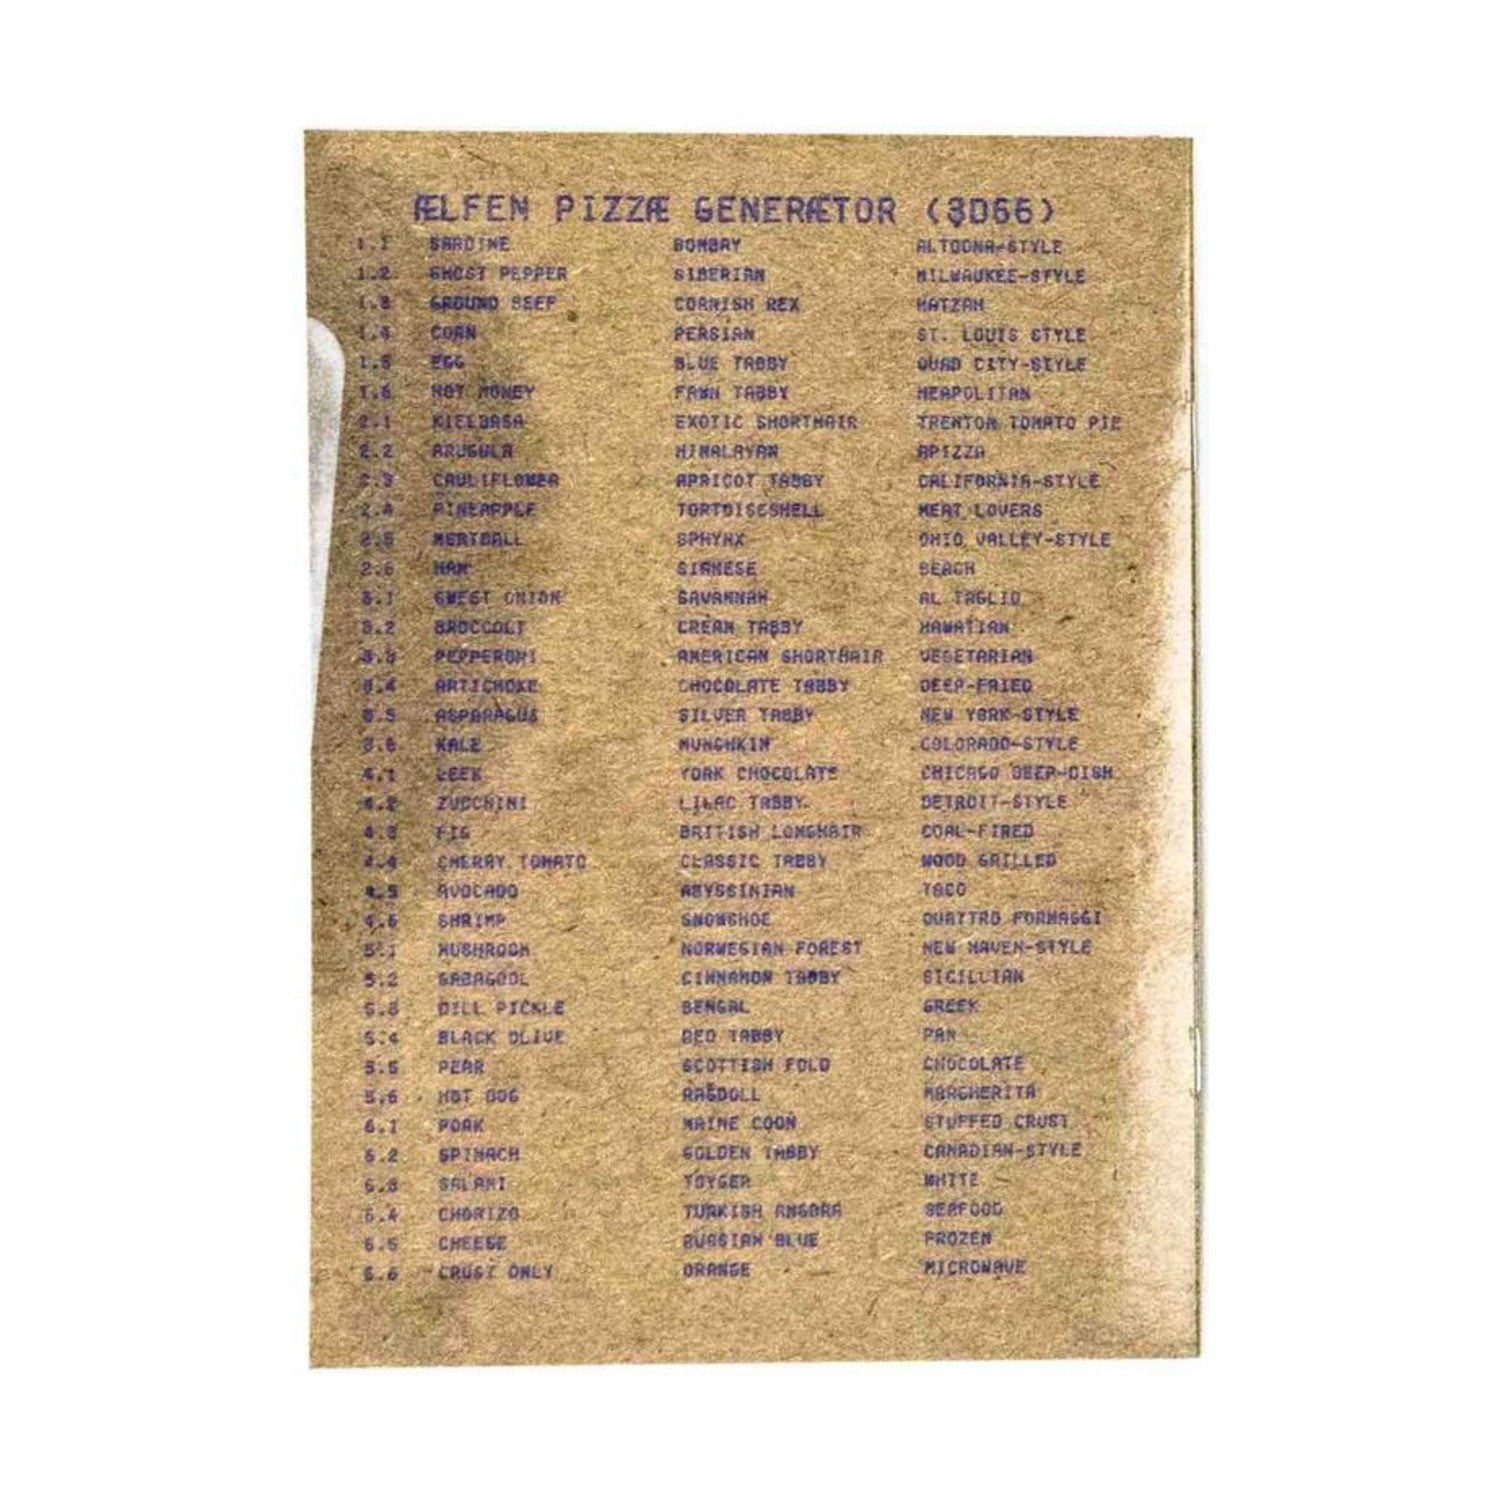 ÆLFEN PIZZÆ GENERÆTOR (3D66)
1.1 SARDINE BOMBAY ALTOONA-STYLE
1.2 GHOST PEPPER SIBERIAN MILWAUKEE-STYLE
1.3 GROUND BEEF CORNISH REX MATZAH
1.4 CORN PERSIAN ST. LOUIS STYLE
1.5 EGG BLUE TABBY QUAD CITY-STYLE
1.6 HOT HONEY FAWN TABBY NEAPOLITAN
2.1 KIELBASA EXOTIC SHORTHAIR TRENTON TOMATO PIE
2.2 ARUGULA HIMALAYAN APIZZA
2.3 CAULIFLOWER APRICOT TABBY CALIFORNIA-STYLE
2.4 PINEAPPLE TORTOISESHELL MEAT LOVERS
2.5 MEATBALL SPHYNX OHIO VALLEY-STYLE
2.6 HAM SIAMESE BEACH
3.1 SWEET ONION SAVANNAH AL TAGLIO
3.2 BROCCOLI CREAM TABBY HAWAIIAN
3.3 PEPPERONI AMERICAN SHORTHAIR VEGETARIAN
3.4 ARTICHOKE CHOCOLATE TABBY DEEP-FRIED
3.5 ASPARAGUS SILVER TABBY NEW YORK-STYLE
3.6 KALE MUNCHKIN COLORADO-STYLE
4.1 LEEK YORK CHOCOLATE CHICAGO DEEP-DISH
4.2 ZUCCHINI LILAC TABBY DETROIT-STYLE
4.3 FIG BRITISH LONGHAIR COAL-FIRED
4.4 CHERRY TOMATO CLASSIC TABBY WOOD GRILLED
4.5 AVOCADO ABYSSINIAN TACO
4.6 SHRIMP SNOWSHOE QUATTRO FORMAGGI
5.1 MUSHROOM NORWEGIAN FOREST NEW HAVEN-STYLE
5.2 GABAGOOL CINNAMON TABBY SICILLIAN
5.3 DILL PICKLE BENGAL GREEK
5.4 BLACK OLIVE RED TABBY PAN
5.5 PEAR SCOTTISH FOLD CHOCOLATE
5.6 HOT DOG RAGDOLL MARGHERITA
6.1 PORK MAINE COON STUFFED CRUST
6.2 SPINACH GOLDEN TABBY CANADIAN-STYLE
6.3 SALAMI TOYGER WHITE
6.4 CHORIZO TURKISH ANGORA SEAFOOD
6.5 CHEESE RUSSIAN BLUE FROZEN
6.6 CRUST ONLY ORANGE MICROWAVE